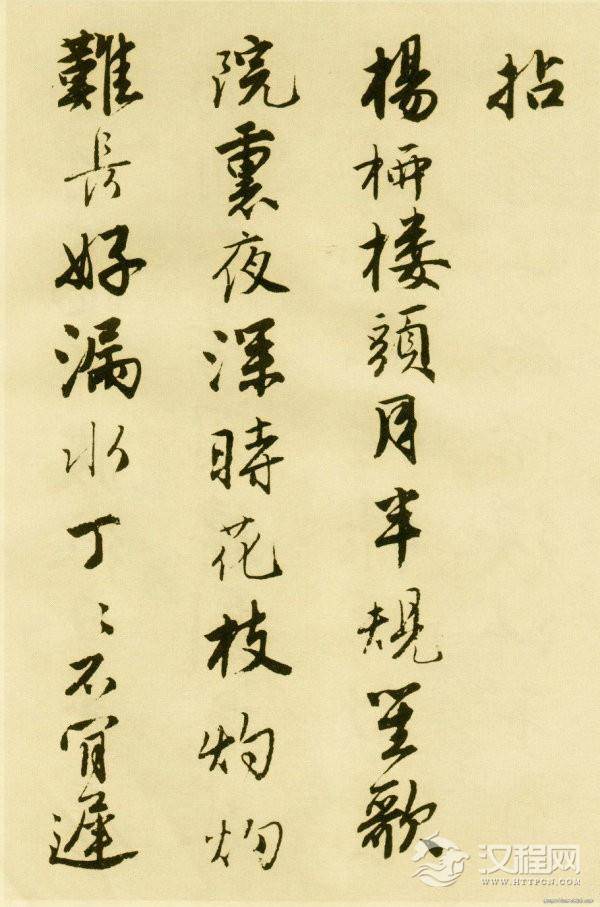 拈
楊桺楼頭月半規笙歌
院裏夜深時花枝灼灼
難長好漏水丁〻不肯遲
汉程网
WWW.HTTPCN.COM